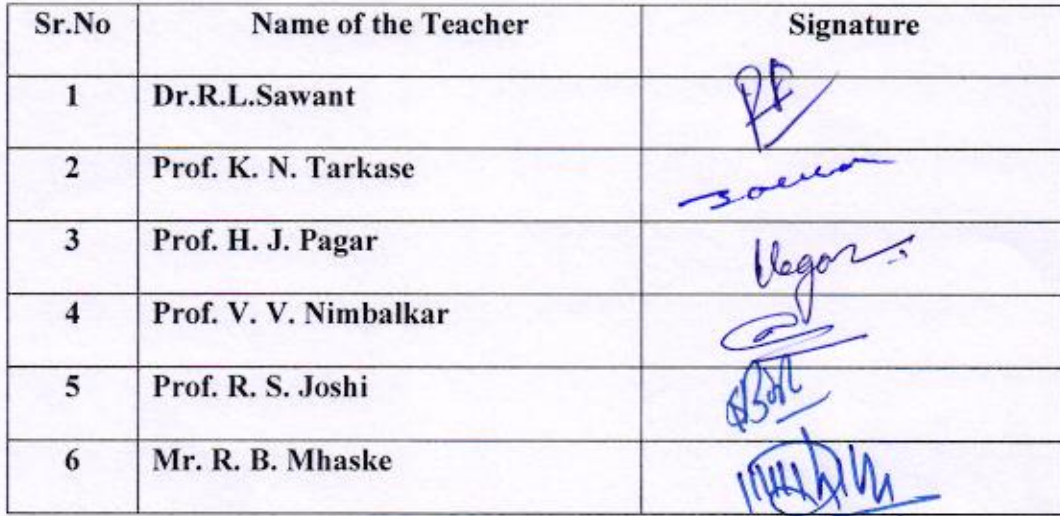 Sr.No Name of the Teacher Signature
1 Dr.R.L.Sawant
2 Prof. K. N. Tarkase
3 Prof. H. J. Pagar
4 Prof. V. V. Nimbalkar
5 Prof. R. S. Joshi
6 Mr. R. B. Mhaske